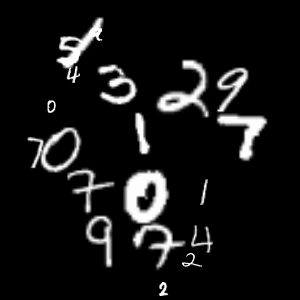 5 2
4 3 2 9
0 1 7
7 0
7 0 1
9 7 4
2
2